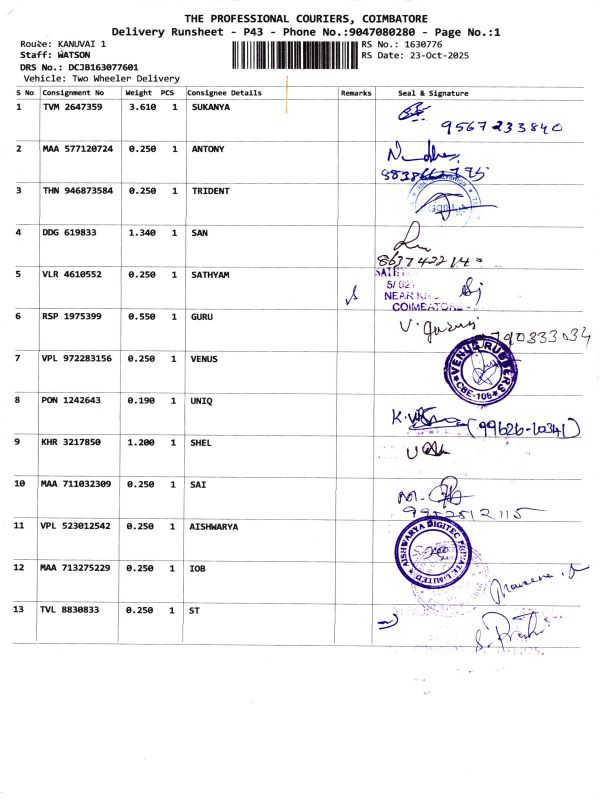 THE PROFESSIONAL COURIERS, COIMBATORE
Delivery Runsheet - P43 - Phone No.:9047080280 - Page No.:1
Route: KANUVAI 1 RS No.: 1630776
Staff: WATSON RS Date: 23-Oct-2025
DRS No.: DCJB163077601
Vehicle: Two Wheeler Delivery
S No Consignment No Weight PCS Consignee Details Remarks Seal & Signature
1 TVM 2647359 3.610 1 SUKANYA
9567233840
2 MAA 577120724 0.250 1 ANTONY
3 THN 946873584 0.250 1 TRIDENT
4 DDG 619833 1.340 1 SAN
5 VLR 4610552 0.250 1 SATHYAM
NEAR
COIMBATORE
6 RSP 1975399 0.550 1 GURU
7 VPL 972283156 0.250 1 VENUS
VENUS RUBBERS
CBE-106
8 PON 1242643 0.190 1 UNIQ
(99626-10341)
9 KHR 3217850 1.200 1 SHEL
10 MAA 711032309 0.250 1 SAI
9952512115
11 VPL 523012542 0.250 1 AISHWARYA
AISHWARYA DIGITEC PRIVATE LIMITED
12 MAA 713275229 0.250 1 IOB
13 TVL 8830833 0.250 1 ST